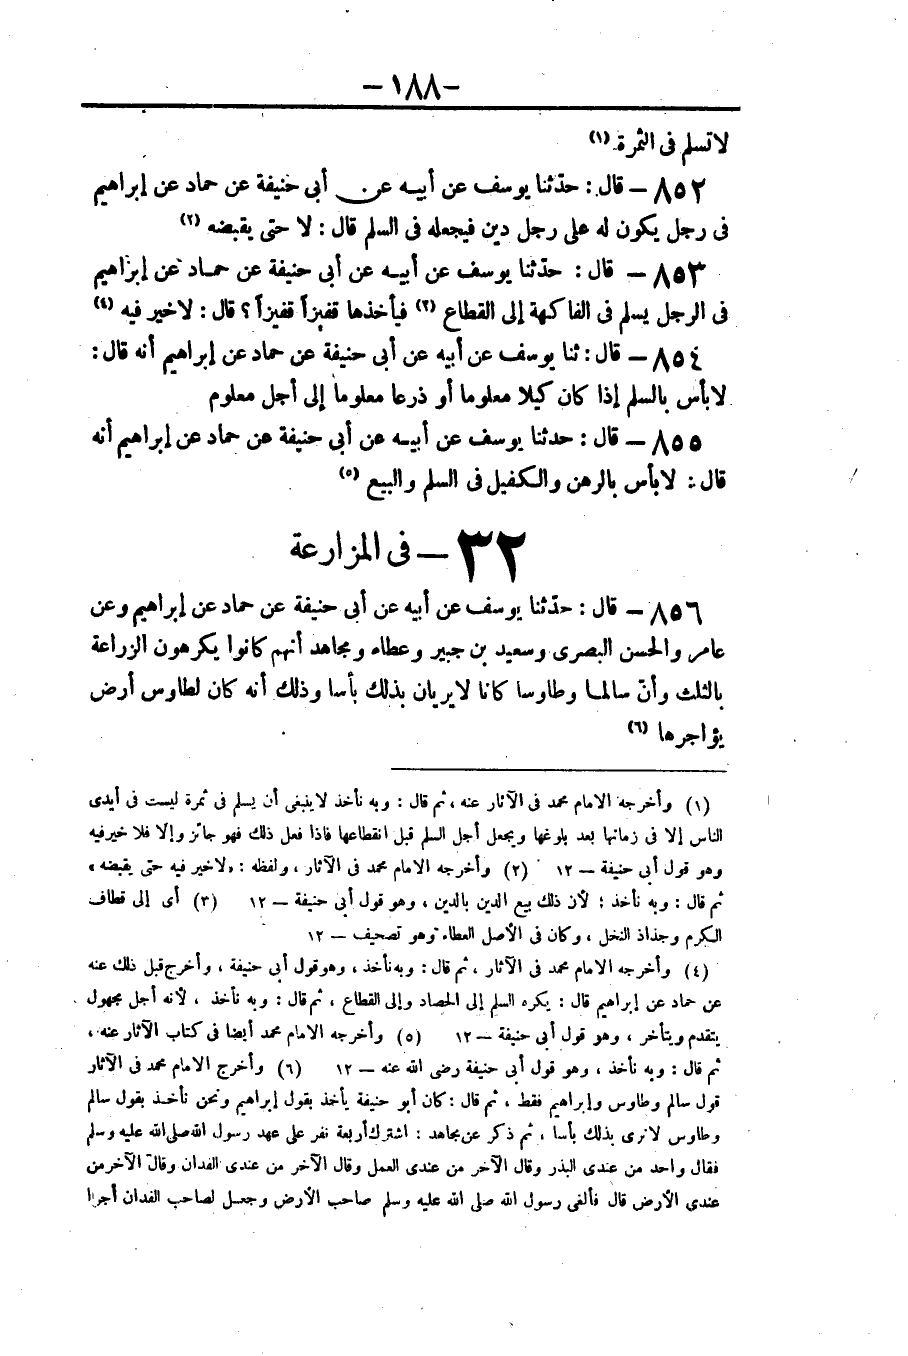 – ١٨٨ –
لا تسلم فى الثمرة (١)
٨٥٢ – قال : حدّثنا يوسف عن أبيه عن أبى حنيفة عن حماد عن إبراهيم
فى رجل يكون له على رجل دين فيجعله فى السلم قال : لا حتى يقبضه (٢)
٨٥٣ – قال : حدّثنا يوسف عن أبيه عن أبى حنيفة عن حماد عن إبراهيم
فى الرجل يسلم فى الفاكهة إلى القطاع (٣) فيأخذها قفيزاً قفيزاً ؟ قال : لا خير فيه (٤)
٨٥٤ – قال : ثنا يوسف عن أبيه عن أبى حنيفة عن حماد عن إبراهيم أنه قال :
لا بأس بالسلم إذا كان كيلا معلوما أو ذرعا معلوما إلى أجل معلوم
٨٥٥ – قال : حدثنا يوسف عن أبيه عن أبى حنيفة عن حماد عن إبراهيم أنه
قال : لا بأس بالرهن والكفيل فى السلم والبيع (٥)
٣٢ – فى المزارعة
٨٥٦ – قال : حدّثنا يوسف عن أبيه عن أبى حنيفة عن حماد عن إبراهيم وعن
عامر والحسن البصرى وسعيد بن جبير وعطاء ومجاهد أنهم كانوا يكرهون الزراعة
بالثلث وأنّ سالما وطاوسا كانا لا يريان بذلك بأسا وذلك أنه كان لطاوس أرض
يؤاجرها (٦)
(١) وأخرجه الامام محمد فى الآثار عنه ، ثم قال : وبه نأخذ لا ينبغى أن يسلم فى ثمرة ليست فى أيدى
الناس إلا فى زمانها بعد بلوغها ويجعل أجل السلم قبل انقطاعها فاذا فعل ذلك فهو جائز وإلا فلا خير فيه
وهو قول أبى حنيفة – ١٢ (٢) وأخرجه الامام محمد فى الآثار ، ولفظه : «لا خير فيه حتى يقبضه»
ثم قال : وبه نأخذ ؛ لأن ذلك بيع الدين بالدين ، وهو قول أبى حنيفة – ١٢ (٣) أى إلى قطاف
الكرم وجذاذ النخل ، وكان فى الأصل العطاء وهو تصحيف – ١٢
(٤) وأخرجه الامام محمد فى الآثار ، ثم قال : وبه نأخذ ، وهو قول أبى حنيفة ، وأخرج قبل ذلك عنه
عن حماد عن إبراهيم قال : يكره السلم إلى الحصاد وإلى القطاع ، ثم قال : وبه نأخذ ، لأنه أجل مجهول
يتقدم ويتأخر ، وهو قول أبى حنيفة – ١٢ (٥) وأخرجه الامام محمد أيضا فى كتاب الآثار عنه ،
ثم قال : وبه نأخذ ، وهو قول أبى حنيفة رضى الله عنه – ١٢ (٦) وأخرج الامام محمد فى الآثار
قول سالم وطاوس وإبراهيم فقط ، ثم قال : كان أبو حنيفة يأخذ بقول إبراهيم ونحن نأخذ بقول سالم
وطاوس لا نرى بذلك بأسا ، ثم ذكر عن مجاهد : اشترك أربعة نفر على عهد رسول الله صلى الله عليه وسلم
فقال واحد من عندى البذر وقال الآخر من عندى العمل وقال الآخر من عندى الفدان وقال الآخر من
عندى الأرض قال فألغى رسول الله صلى الله عليه وسلم صاحب الأرض وجعل لصاحب الفدان أجرا